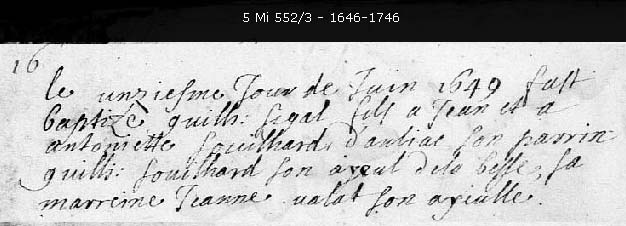 5 Mi 552/3 - 1646-1746
16
le unziesme Jour de Juin 1649 fust
baptizé guilh: segal fils a Jean et a
antoniette souilhard d'auliac son parrin
guilh: souilhard son ayeul dela besse, sa
marreine Jeanne valat son ayeulle.